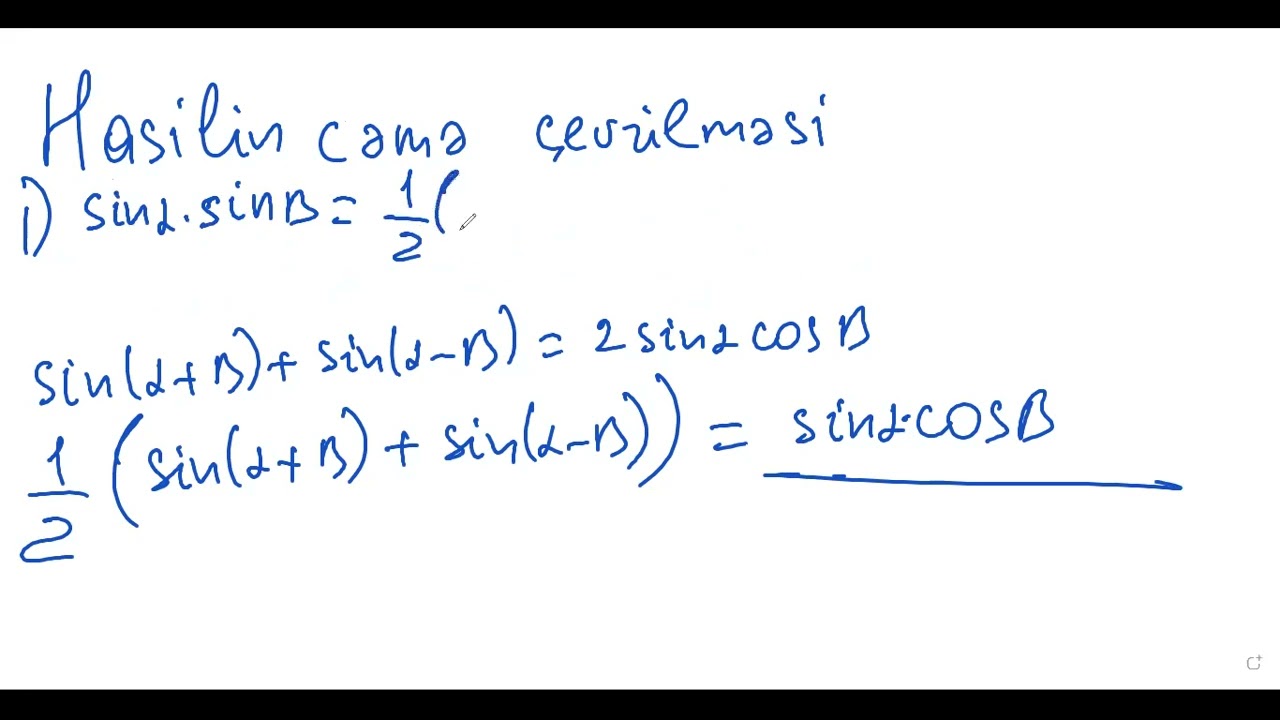 Hasilin cəmə çevrilməsi
1) sinα·sinβ = 1/2 (
sin(α+β)+ sin(α-β) = 2 sinα cosβ
1/2 (sin(α+β) + sin(α-β)) = sinα·cosβ